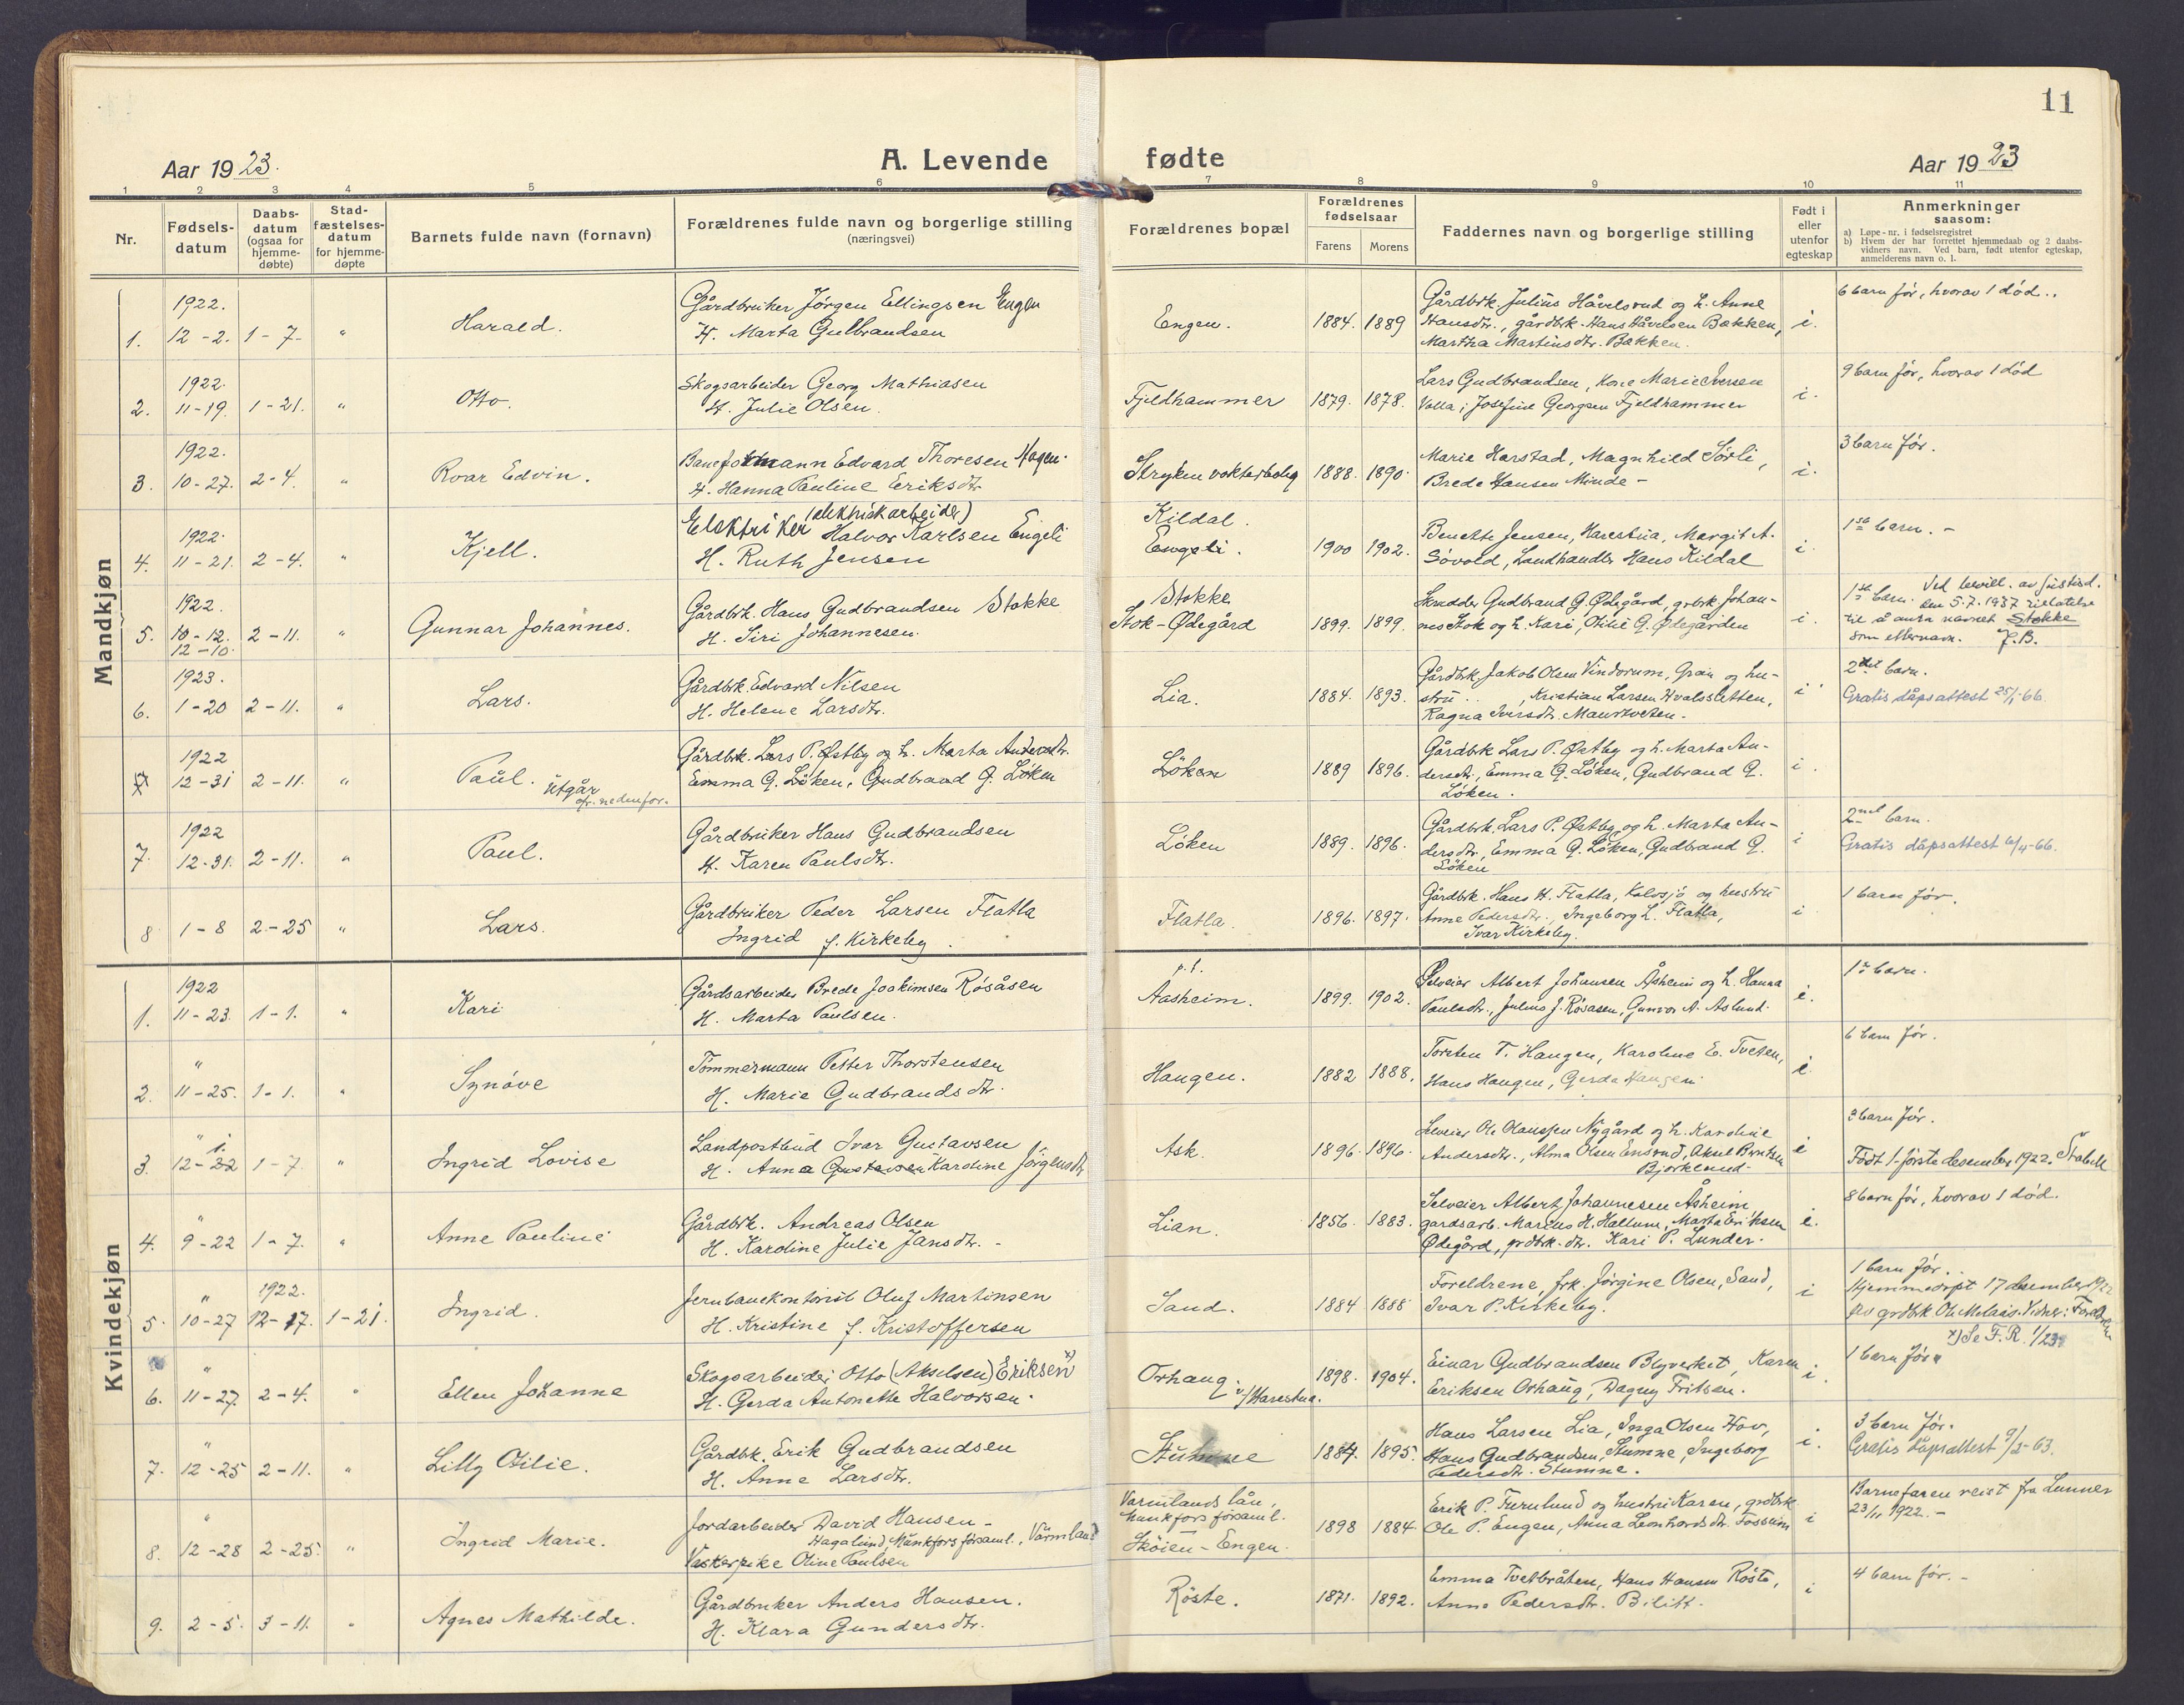 11
Aar 19 23.
A. Levende fødte
Aar 19 23
1 2 3 4 5 6 7 8 9 10 11
Nr.
Fødsels-
datum
Daabs-
datum
(ogsaa for
hjemme-
døbte)
Stad-
fæstelses-
datum
for hjemme-
døpte
Barnets fulde navn (fornavn)
Forældrenes fulde navn og borgerlige stilling
(næringsvei)
Forældrenes bopæl
Forældrenes
fødselsaar
Farens Morens
Faddernes navn og borgerlige stilling
Født i
eller
utenfor
egteskap
Anmerkninger
saasom:
a) Løpe-nr. i fødselsregistret
b) Hvem der har forrettet hjemmedaab og 2 daabs-
vidners navn. Ved barn, født utenfor egteskap,
anmelderens navn o. l.
Mandkjøn
1922.
1. 12-2. 1-7- " Harald.
Gårdbruker Jörgen Ellingsen Engen
H. Marta Gulbrandsen
Engen. 1884. 1889
Gårdbrk. Julius Håvelsrud og h. Anne
Hansdtr., gårdbrk. Hans Håvelsen Bækken,
Martha Martinsdtr. Bækken.
i.
6 barn før, hvorav 1 död..
1922.
2. 11-19. 1-21. " Otto.
Skogsarbeider Georg Mathiasen
H. Julie Olsen.
Fjeldhammer 1879. 1878.
Lars Gudbrandsen, Kone Marie Iversen
Volla; Josefine Georgsen Fjeldhammer
i.
9 barn før, hvorav 1 död
1922.
3. 10-27. 2-4. " Roar Edvin.
Baneformann Edvard Thoresen Hagen.
H. Hanna Pauline Eriksdtr.
Stryken vokterbolig 1888. 1890.
Marie Harstad, Magnhild Sörli,
Brede Hansen Minde -
i.
3 barn før.
1922.
4. 11-21. 2-4. " Kjell.
(elektriskarbeider)
Elektriker Halvor Karlsen Engeli
H. Ruth Jensen
Kildal.
Engeli. 1900 1902.
Benette Jensen, Harestua, Margit A.
Sövold, Landhandler Hans Kildal
i.
1ste barn. -
1922.
5. 10-12. 2-11. " Gunnar Johannes.
12-10.
Gårdbrk. Hans Gudbrandsen Stokke
H. Siri Johannesen.
Stokke
Stok-Ødegård 1899. 1899.
Skrædder Gudbrand G. Ødegård, grbrk. Johan-
nes Stok og h. Kari, Otilie G. Ødegården
i.
1ste barn. Ved bevill. av Justisd.
den 5.7.1937 tillatelse
til å anta navnet Stokke
som etternavn. J.B.
1923.
6. 1-20 2-11. " Lars.
Gårdbrk. Edvard Nilsen
H. Helene Larsdtr.
Lia. 1884. 1893.
Gårdbrk. Jakob Olsen Vindorum, Gran og hu-
stru.. Kristian Larsen Hvalssletten,
Ragna Iversdtr. Maurtveten.
i
2det barn.
Gratis dåpsattest 25/1-66.
1922
7 12-31 2-11. " Paul. Utgår
cfr. nedenfor.
Gårdbrk. Lars P. Østby og h. Marta Andersdtr.
Emma G. Löken, Gudbrand G. Löken
Löken 1889 1896.
Gårdbrk Lars P. Østby og h. Marta An-
dersdtr., Emma G. Löken, Gudbrand G.
Löken.
i.
1922
7. 12-31. 2-11. " Paul.
Gårdbruker Hans Gudbrandsen
H. Karen Paulsdtr.
Löken 1889. 1896.
Gårdbrk. Lars P. Østby og h. Marta An-
dersdtr., Emma G. Löken, Gudbrand G.
Löken
i
2net barn.
Gratis dåpsattest 6/4-66.
8 1-8 2-25 " Lars.
Gårdbruker Peder Larsen Flatla
Ingrid f. Kirkeby.
Flatla. 1896. 1897.
Gårdbrk. Hans H. Flatla, Kalosjö og hustru
Anne Pedersdtr., Ingeborg L. Flatla,
Ivar Kirkeby.
i
1 barn før.
Kvindekjøn
1922
1. 11-23. 1-1. " Kari
Gårdsarbeider Brede Joakimsen Rösåsen
H. Marta Paulsen.
p.t.
Aasheim. 1899. 1902.
Selveier Albert Johansen Åsheim og h. Hanna
Paulsdtr., Julius J. Rösåsen, Gunvor A. Aslund.
i.
1ste barn.
"
2. 11-25. 1-1. " Synöve
Tömmermann Petter Thorstensen
H. Marie Gudbrandsdtr.
Haugen. 1882 1888.
Torsten T. Haugen, Karoline E. Tveten,
Hans Haugen, Gerda Haugen
i.
6 barn før.
"
3. 12-22 1-7. " Ingrid Lovise
1.
Landpostbud Ivar Gustavsen
H. Anna Gustavsen Karoline Jörgensdtr.
Ask. 1896. 1896.
Selveier Ole Olaussen Nygård og h. Karoline
Andersdtr., Alma Olsen Ensrud, Aksel Berntsen
Bjørklund.
i
2 barn før.
Født 1. förste desember 1922.
"
4. 9-22 1-7. " Anne Pauline
Gårdbrk. Andreas Olsen
H. Karoline Julie Jansdtr. -
Lian. 1856. 1883.
Selveier Albert Johannesen Åsheim
gardsarb. Marius H. Hallum, Marta Eriksen
Ødegård, grdbrk. dtr. Kari P. Lunder.
i.
8 barn før, hvorav 1 död.
" 1922.
5. 10-27 12-17. 1-21. Ingrid.
Jernbanekontorist Oluf Martinsen
H. Kristine f. Kristoffersen
Sand. 1884 1888
Foreldrene, frk. Jørgine Olsen, Sand,
Ivar P. Kirkeby.
i
1 barn før..
Hjemmedøpt 17 desember 1922
av grdbrk. Ole Melaas. Vidner: Foreldrene
x) Se F.R. 1/23.
"
6. 11-27 2-4. " Ellen Johanne
Skogsarbeider Otto (Akselsen) Eriksen x)
H. Gerda Antonette Halvorsen.
Orhaug. v/Harestua. 1898. 1904.
Einar Gudbrandsen Blyverket, Karen
Eriksen Orhaug, Dagny Fritsen.
i.
1 barn før.
"
7. 12-25 2-11. " Lilly Otilie.
Gårdbk. Erik Gudbrandsen
H. Anne Larsdtr.
Stumne 1884. 1895.
Hans Larsen Lia, Inga Olsen Hov,
Hans Gudbrandsen, Stumne, Ingeborg
Pedersdtr. Stumne.
i.
3 barn før.
Gratis dåpsattest 9/2-63.
"
8. 12-28 2-25. " Ingrid Marie.
Jordarbeider David Hansen -
Hagalund, Munkfors församl., Värmland
Vaskerpike Oline Paulsen
Varmlands län,
Munkfors församl.
Sköien-Engen. 1898 1884.
Erik P. Furulund og hustru Karen, grdbrk
Ole P. Engen, Anna Leonhardsdtr. Fossum
i
Barnefaren reist fra Lunner
23/11 1922. -
9. 2-5. 3-11. " Agnes Mathilde.
Gårdbruker Anders Hansen.
H. Klara Gundersdtr.
Röste. 1871. 1892.
Emma Tvetbråten, Hans Hansen Röste,
Anne Pedersdtr. Bilitt.
i
4 barn før. -